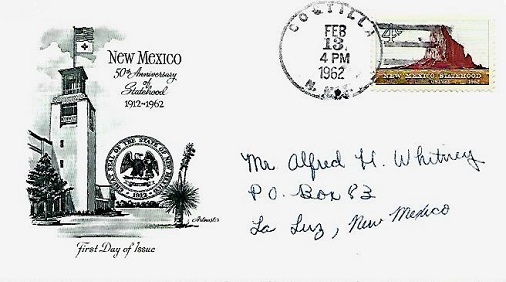 New Mexico
50th Anniversary
of
Statehood
1912~1962
GREAT SEAL OF THE STATE OF NEW MEXICO
1912
Artmaster
First Day of Issue
COSTILLA
FEB
13
4 PM
1962
N. MEX.
4¢
NEW MEXICO STATEHOOD
1912 1962
Mr Alfred H. Whitney
P.O. Box 83
La Luz, New Mexico